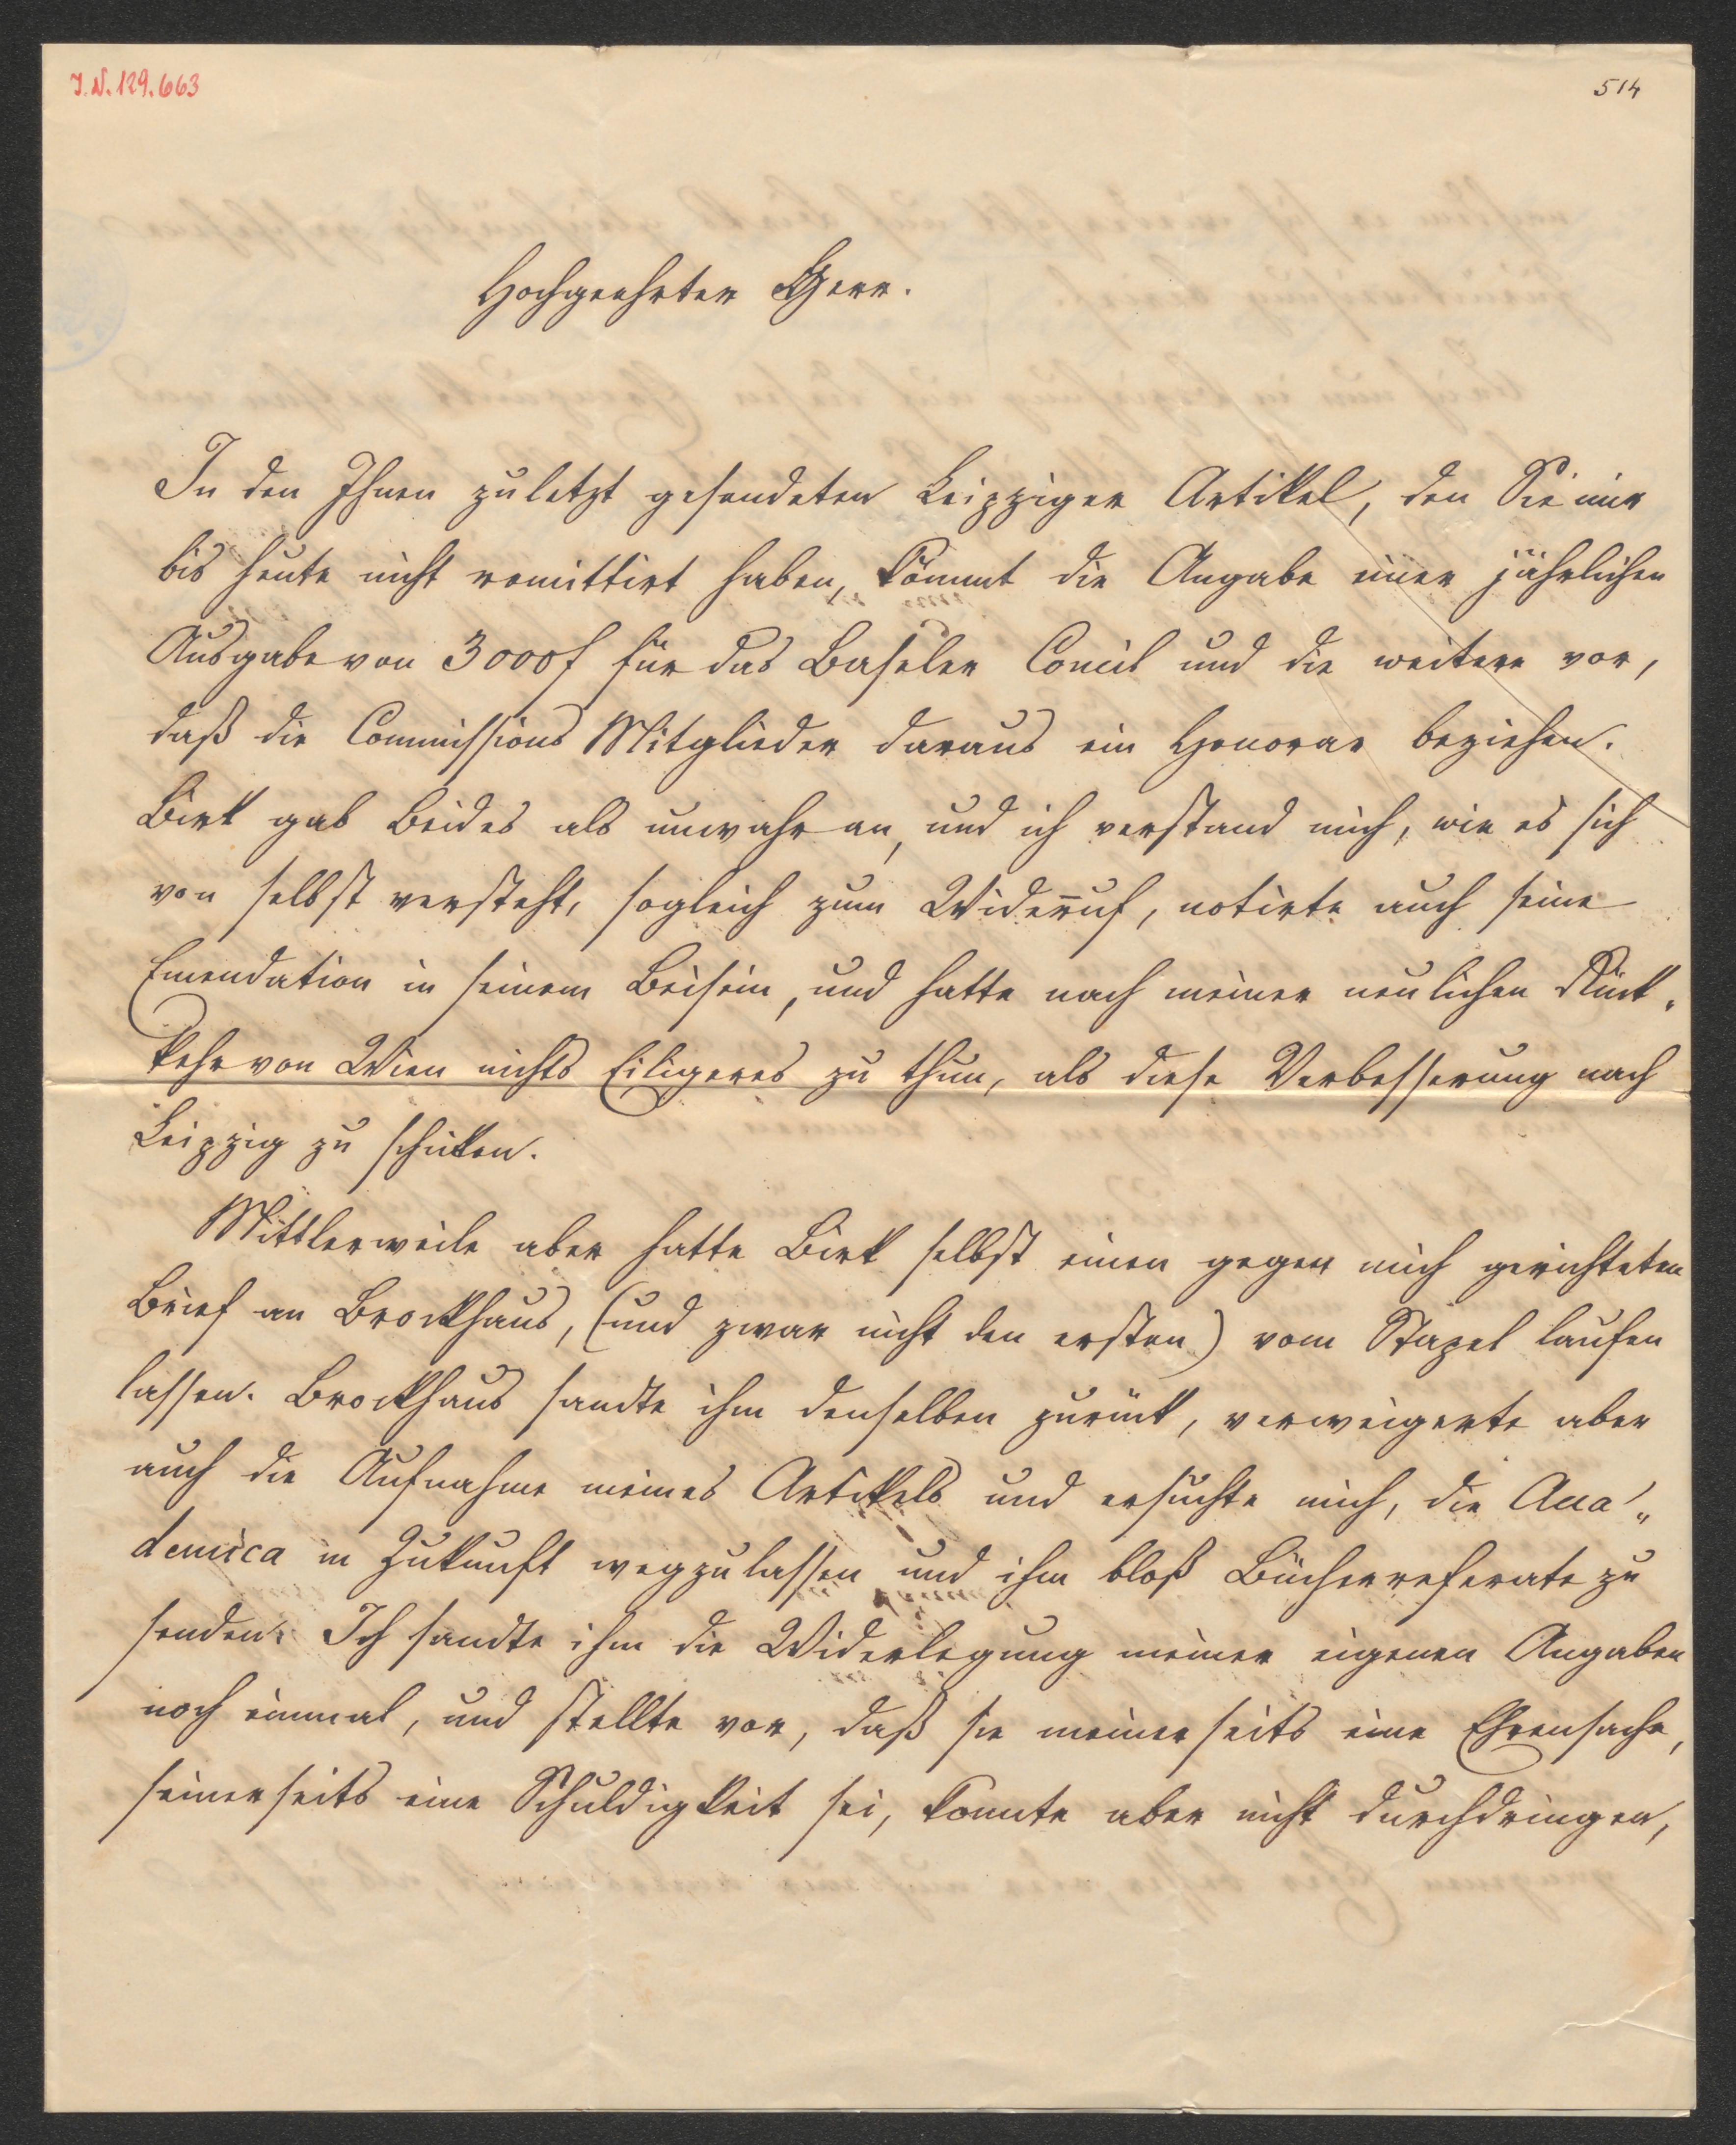 I.N. 129.663
514
Hochgeehrter Herr.
In den Ihnen zuletzt gesendeten Leipziger Artikel, den Sie mir
bis heute nicht remittirt haben, kömmt die Angabe einer jährlichen
Ausgabe von 3000f für das Baseler Concil und die weitere vor,
daß die Commissions Mitglieder daraus ein Honorar beziehen.
Birk gab Beides als unwahr an, und ich verstand mich, wie es sich
von selbst versteht, sogleich zum Widerruf, notirte auch seine
Emendation in seinem Beisein, und hatte nach meiner neulichen Rück-
kehr von Wien nichts Eiligeres zu thun, als diese Verbesserung nach
Leipzig zu schicken.
Mittlerweile aber hatte Birk selbst einen gegen mich gerichteten
Brief an Brockhaus, (und zwar nicht den ersten) vom Stapel laufen
lassen. Brockhaus sandte ihm denselben zurück, verweigerte aber
auch die Aufnahme meines Artikels und ersuchte mich, die Aca-
demica in Zukunft wegzulassen und ihm bloß Bücherreferate zu
senden. Ich sandte ihm die Widerlegung meiner eigenen Angaben
noch einmal, und stellte vor, daß sie meinerseits eine Ehrensache,
seinerseits eine Schuldigkeit sei, konnte aber nicht durchdringen,